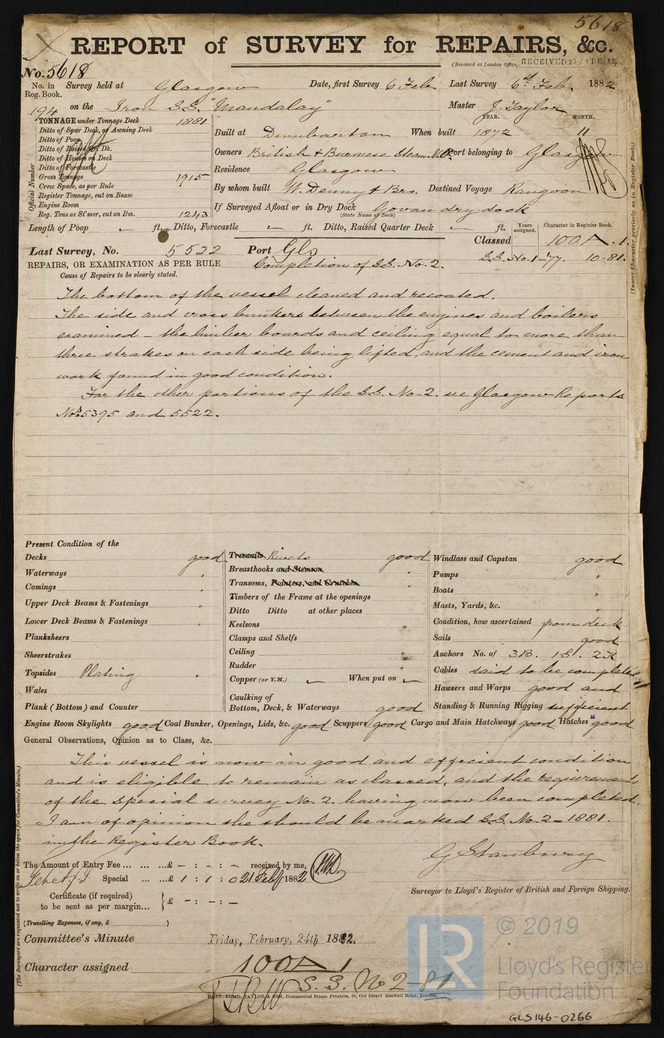 5618
REPORT of SURVEY for REPAIRS, &c.
(Received at London Office, RECEIVED 25
No. 5618
No. in Reg. Book. Survey held at Glasgow Date, first Survey 6 Feb. Last Survey 6th Feb. 1882
194 on the Iron S.S. "Mandalay" Master J. Taylor
TONNAGE under Tonnage Deck 1881
Ditto of Spar Deck, or Awning Deck
Ditto of Poop
Ditto of Raised Qr. Dk.
Ditto of Houses on Deck
Ditto of Forecastle
Gross Tonnage 1915
Crew Space, as per Rule
Register Tonnage, cut on Beam
Engine Room
Reg. Tons as St'mer, cut on Bm. 1243
Official Number
YEAR. MONTH.
Built at Dumbarton When built 1872 11
Owners British & Burmese Steam N. Co Port belonging to Glasgow
Residence Glasgow
By whom built W. Denny & Bros. Destined Voyage Rangoon
If Surveyed Afloat or in Dry Dock Govan dry dock
(State Name of Dock)
Length of Poop " ft. Ditto, Forecastle " ft. Ditto, Raised Quarter Deck " ft.
Years assigned. Character in Register Book.
Classed 100A.1.
S.S. No.1-77 10-81.
(Insert Character precisely as in Register Book.)
Last Survey, No. 5522 Port Gls
REPAIRS, OR EXAMINATION AS PER RULE Completion of S.S. No. 2.
Cause of Repairs to be clearly stated.
The bottom of the vessel cleaned and recoated.
The side and cross bunkers between the engines and boilers
examined - the limber boards and ceiling equal to more than
three strakes on each side being lifted, and the cement and iron
work found in good condition.
For the other portions of the S.S. No. 2. see Glasgow Reports
Nos. 5395 and 5522.
Present Condition of the
Decks good
Waterways "
Comings "
Upper Deck Beams & Fastenings "
Lower Deck Beams & Fastenings "
Planksheers
Sheerstrakes
Topsides Plating "
Wales
Plank (Bottom) and Counter
Treenails Rivets good
Breasthooks and Stemson "
Transoms, Pointers, and Crutches "
Timbers of the Frame at the openings
Ditto Ditto at other places
Keelsons "
Clamps and Shelfs
Ceiling "
Rudder "
Copper (or Y.M.) When put on
Caulking of
Bottom, Deck, & Waterways good
Windlass and Capstan good
Pumps "
Boats "
Masts, Yards, &c. "
Condition, how ascertained from deck
Sails good
Anchors No. of 3B. 1S. 2K
Cables said to be complete
Hawsers and Warps good and
Standing & Running Rigging sufficient
Engine Room Skylights good Coal Bunker, Openings, Lids, &c. good Scuppers good Cargo and Main Hatchways good Hatches good
General Observations, Opinion as to Class, &c.
This vessel is now in good and efficient condition
and is eligible to remain as classed, and the requirements
of the Special survey No. 2. having now been completed
I am of opinion she should be marked S.S. No. 2 - 1881.
in the Register Book.
The Amount of Entry Fee £ - : - : - received by me,
Special £ 1 : 1 : 0 21 Feby 1882
Certificate (if required) to be sent as per margin £ - : - : -
(Travelling Expenses, if any, £ )
G Stanbury
Surveyor to Lloyd's Register of British and Foreign Shipping.
Committee's Minute Friday, February, 24th 1882.
Character assigned 100A 1
S.S. No 2-81
© 2019
LR Lloyd's Register
Foundation
GLS146-0266